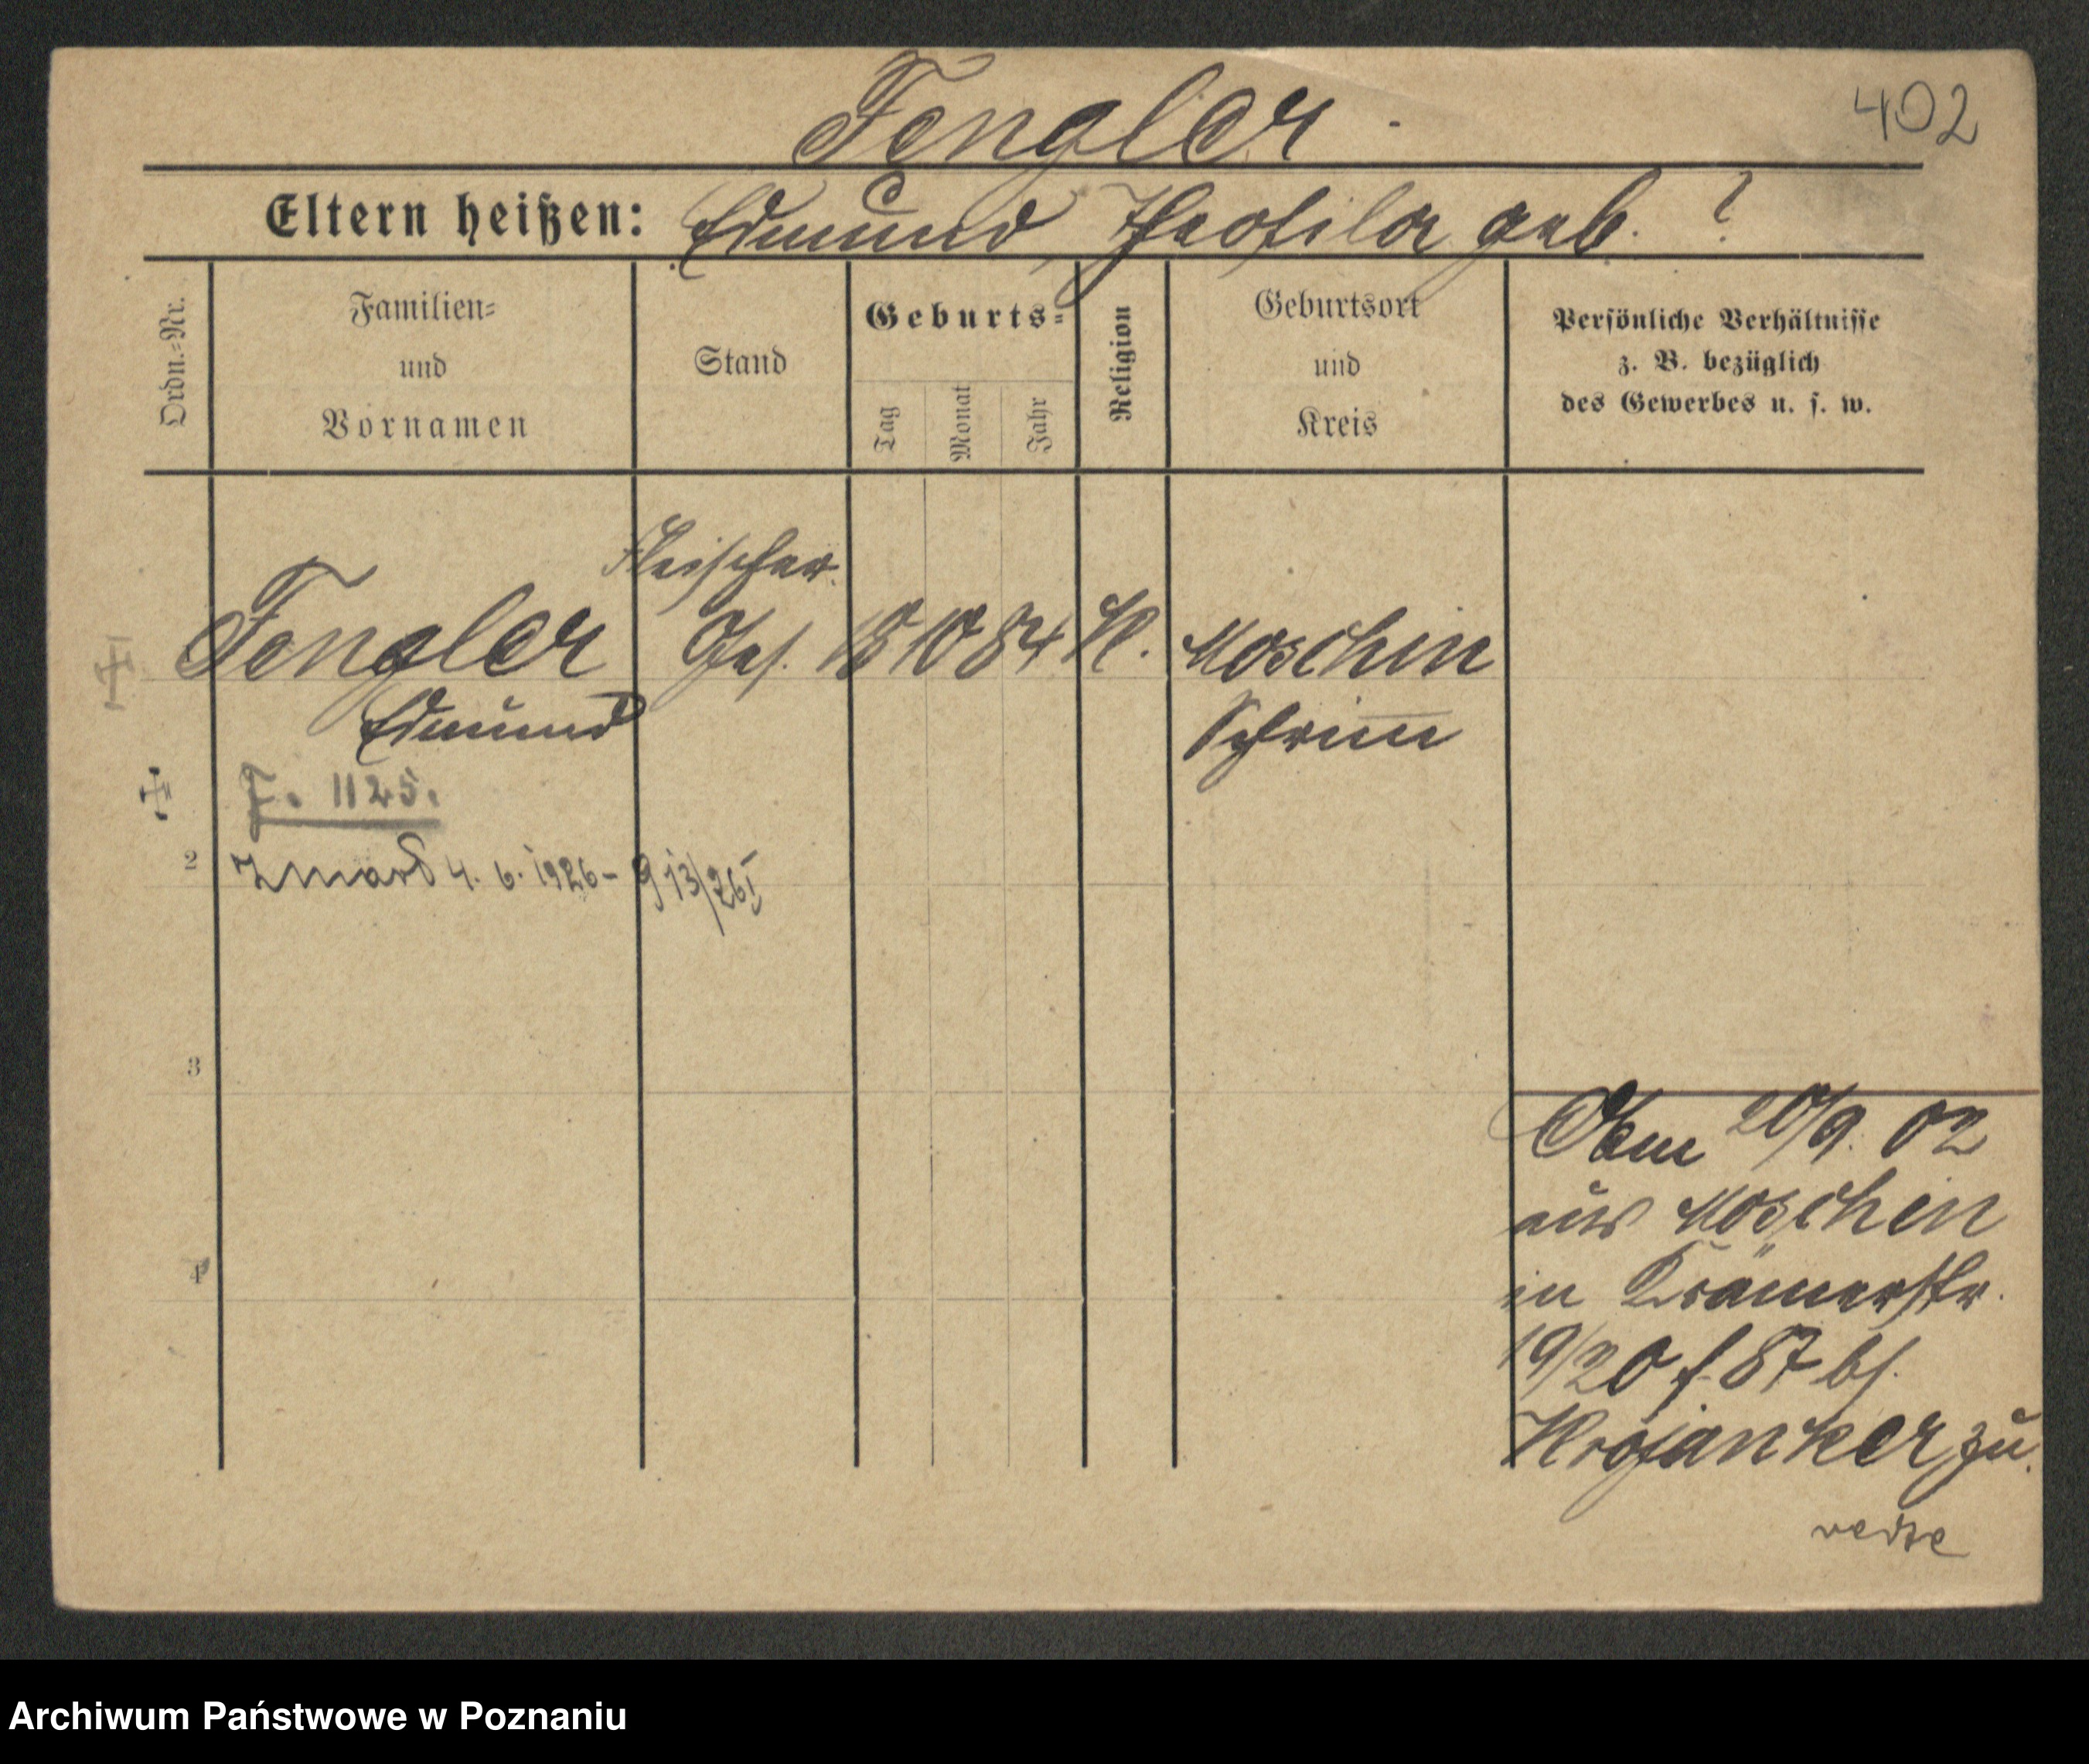 402
Fengler
Eltern heißen: Edmund, Theofila geb. ?
Ordn.-Nr.
Familien-
und
Vornamen
Stand
Geburts-
Tag
Monat
Jahr
Religion
Geburtsort
und
Kreis
Persönliche Verhältnisse
z. B. bezüglich
des Gewerbes u. s. w.
Fleischer
Fengler Ges. 18 10 84 K. Moschin
Edmund Schrim̅
F. 1125.
2
Zmarł 4. 6. 1926 - 913/26
3
4
20/9. 02
aus Moschin
in Krämerstr.
19/20 f. 87 bf.
Krojanker zu.
verte
Archiwum Państwowe w Poznaniu